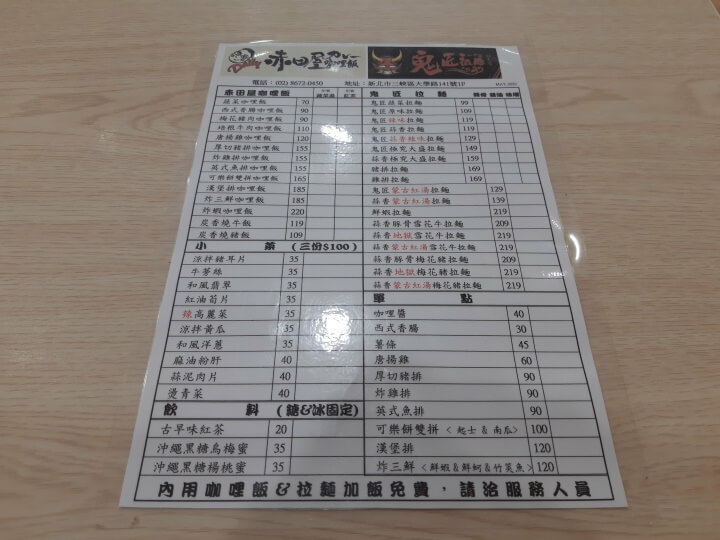 Daily 赤田屋カレー咖哩飯
鬼匠拉麵
電話：(02) 8672-0450 地址：新北市三峽區大學路141號1F
赤田屋咖哩飯
蔬菜咖哩飯 70
西式香腸咖哩飯 90
梅花豬肉咖哩飯 90
培根牛肉咖哩飯 110
唐揚雞咖哩飯 120
厚切豬排咖哩飯 155
炸雞排咖哩飯 155
英式魚排咖哩飯 155
可樂餅雙拼咖哩飯 165
漢堡排咖哩飯 185
炸三鮮咖哩飯 185
炸蝦咖哩飯 220
炭香燒牛飯 119
炭香燒豬飯 109
小菜 (三份$100)
涼拌豬耳片 35
牛蒡絲 35
和風翡翠 35
紅油筍片 35
辣高麗菜 35
涼拌黃瓜 35
和風洋蔥 35
麻油粉肝 40
蒜泥肉片 40
燙青菜 40
飲料 (糖&冰固定)
古早味紅茶 20
沖繩黑糖烏梅蜜 35
沖繩黑糖楊桃蜜 35
鬼匠拉麵
鬼匠蔬菜拉麵 99
鬼匠原味拉麵 109
鬼匠辣味拉麵 119
鬼匠蒜香拉麵 119
鬼匠蒜香辣味拉麵 129
鬼匠極究大盛拉麵 149
蒜香極究大盛拉麵 159
豬排拉麵 169
雞排拉麵 169
鬼匠蒙古紅湯拉麵 129
蒜香蒙古紅湯拉麵 139
鮮蝦拉麵 219
蒜香豚骨雪花牛拉麵 209
蒜香地獄雪花牛拉麵 219
蒜香蒙古紅湯雪花牛拉麵 219
蒜香豚骨梅花豬拉麵 209
蒜香地獄梅花豬拉麵 219
蒜香蒙古紅湯梅花豬拉麵 219
單點
咖哩醬 40
西式香腸 30
薯條 45
唐揚雞 60
厚切豬排 90
炸雞排 90
英式魚排 90
可樂餅雙拼 < 起士 & 南瓜> 100
漢堡排 120
炸三鮮 <鮮蝦&鮮蚵&竹筴魚> 120
內用咖哩飯&拉麵加飯免費，請洽服務人員